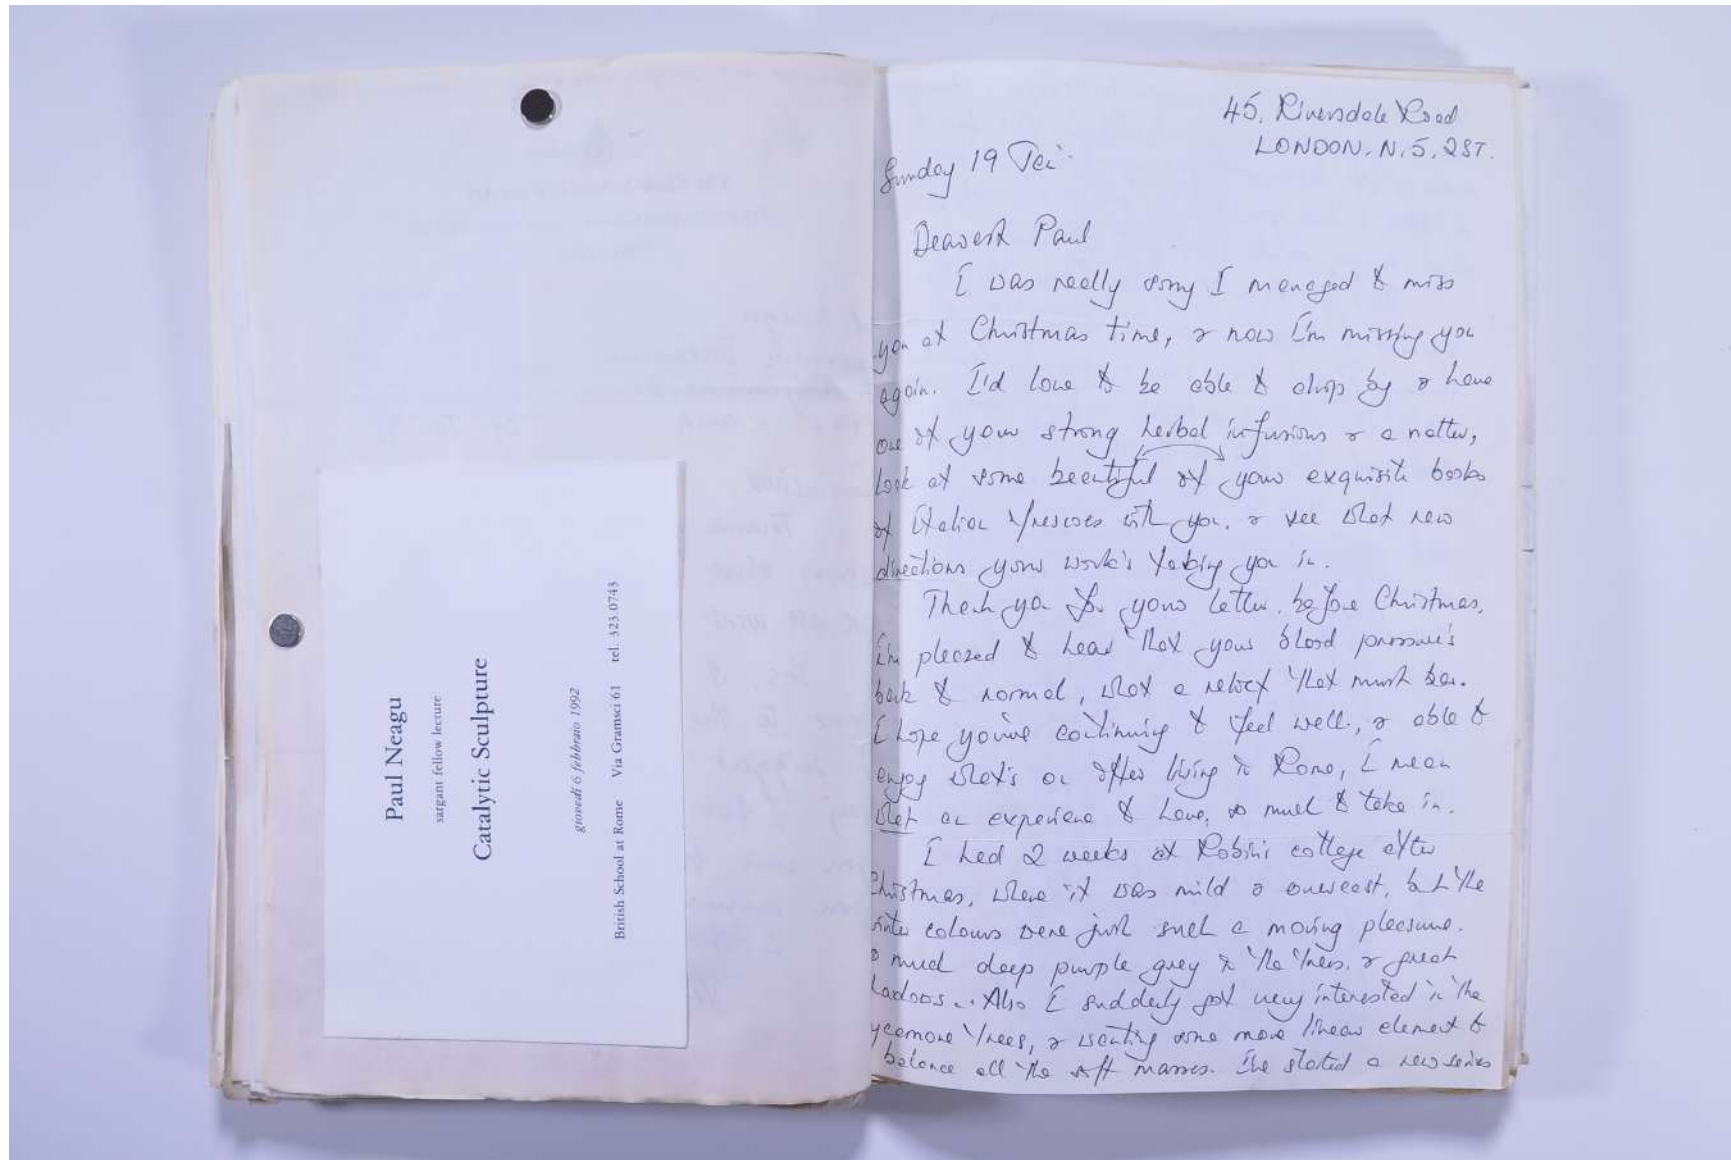 Paul Neagu
sargant fellow lecture
Catalytic Sculpture
giovedì 6 febbraio 1992
British School at Rome Via Gramsci 61 tel. 323.0743
45, Riversdale Road
LONDON. N.5. 2ST.
Sunday 19
Dearest Paul
I was really sorry I managed to miss
you at Christmas time, & now I'm missing you
again. I'd love to be able to drop by & have
one of your strong herbal infusions & a natter,
look at some beautiful of your exquisite books
of Italian frescoes with you, & see what new
directions your work's taking you in.
Thank you for your letter before Christmas,
I'm pleased to hear that your blood pressure's
back to normal, what a relief that must be.
I hope you're continuing to feel well, & able to
enjoy what's on offer living in Rome, I mean
what an experience to have, so much to take in.
I had 2 weeks at Robin's cottage after
Christmas, where it was mild & overcast, but the
winter colours were just such a moving pleasure.
so much deep purple grey in the trees, & great
shadows... Also I suddenly got very interested in the
sycamore trees, & wanting some more linear element to
balance all the soft masses. I've started a new series